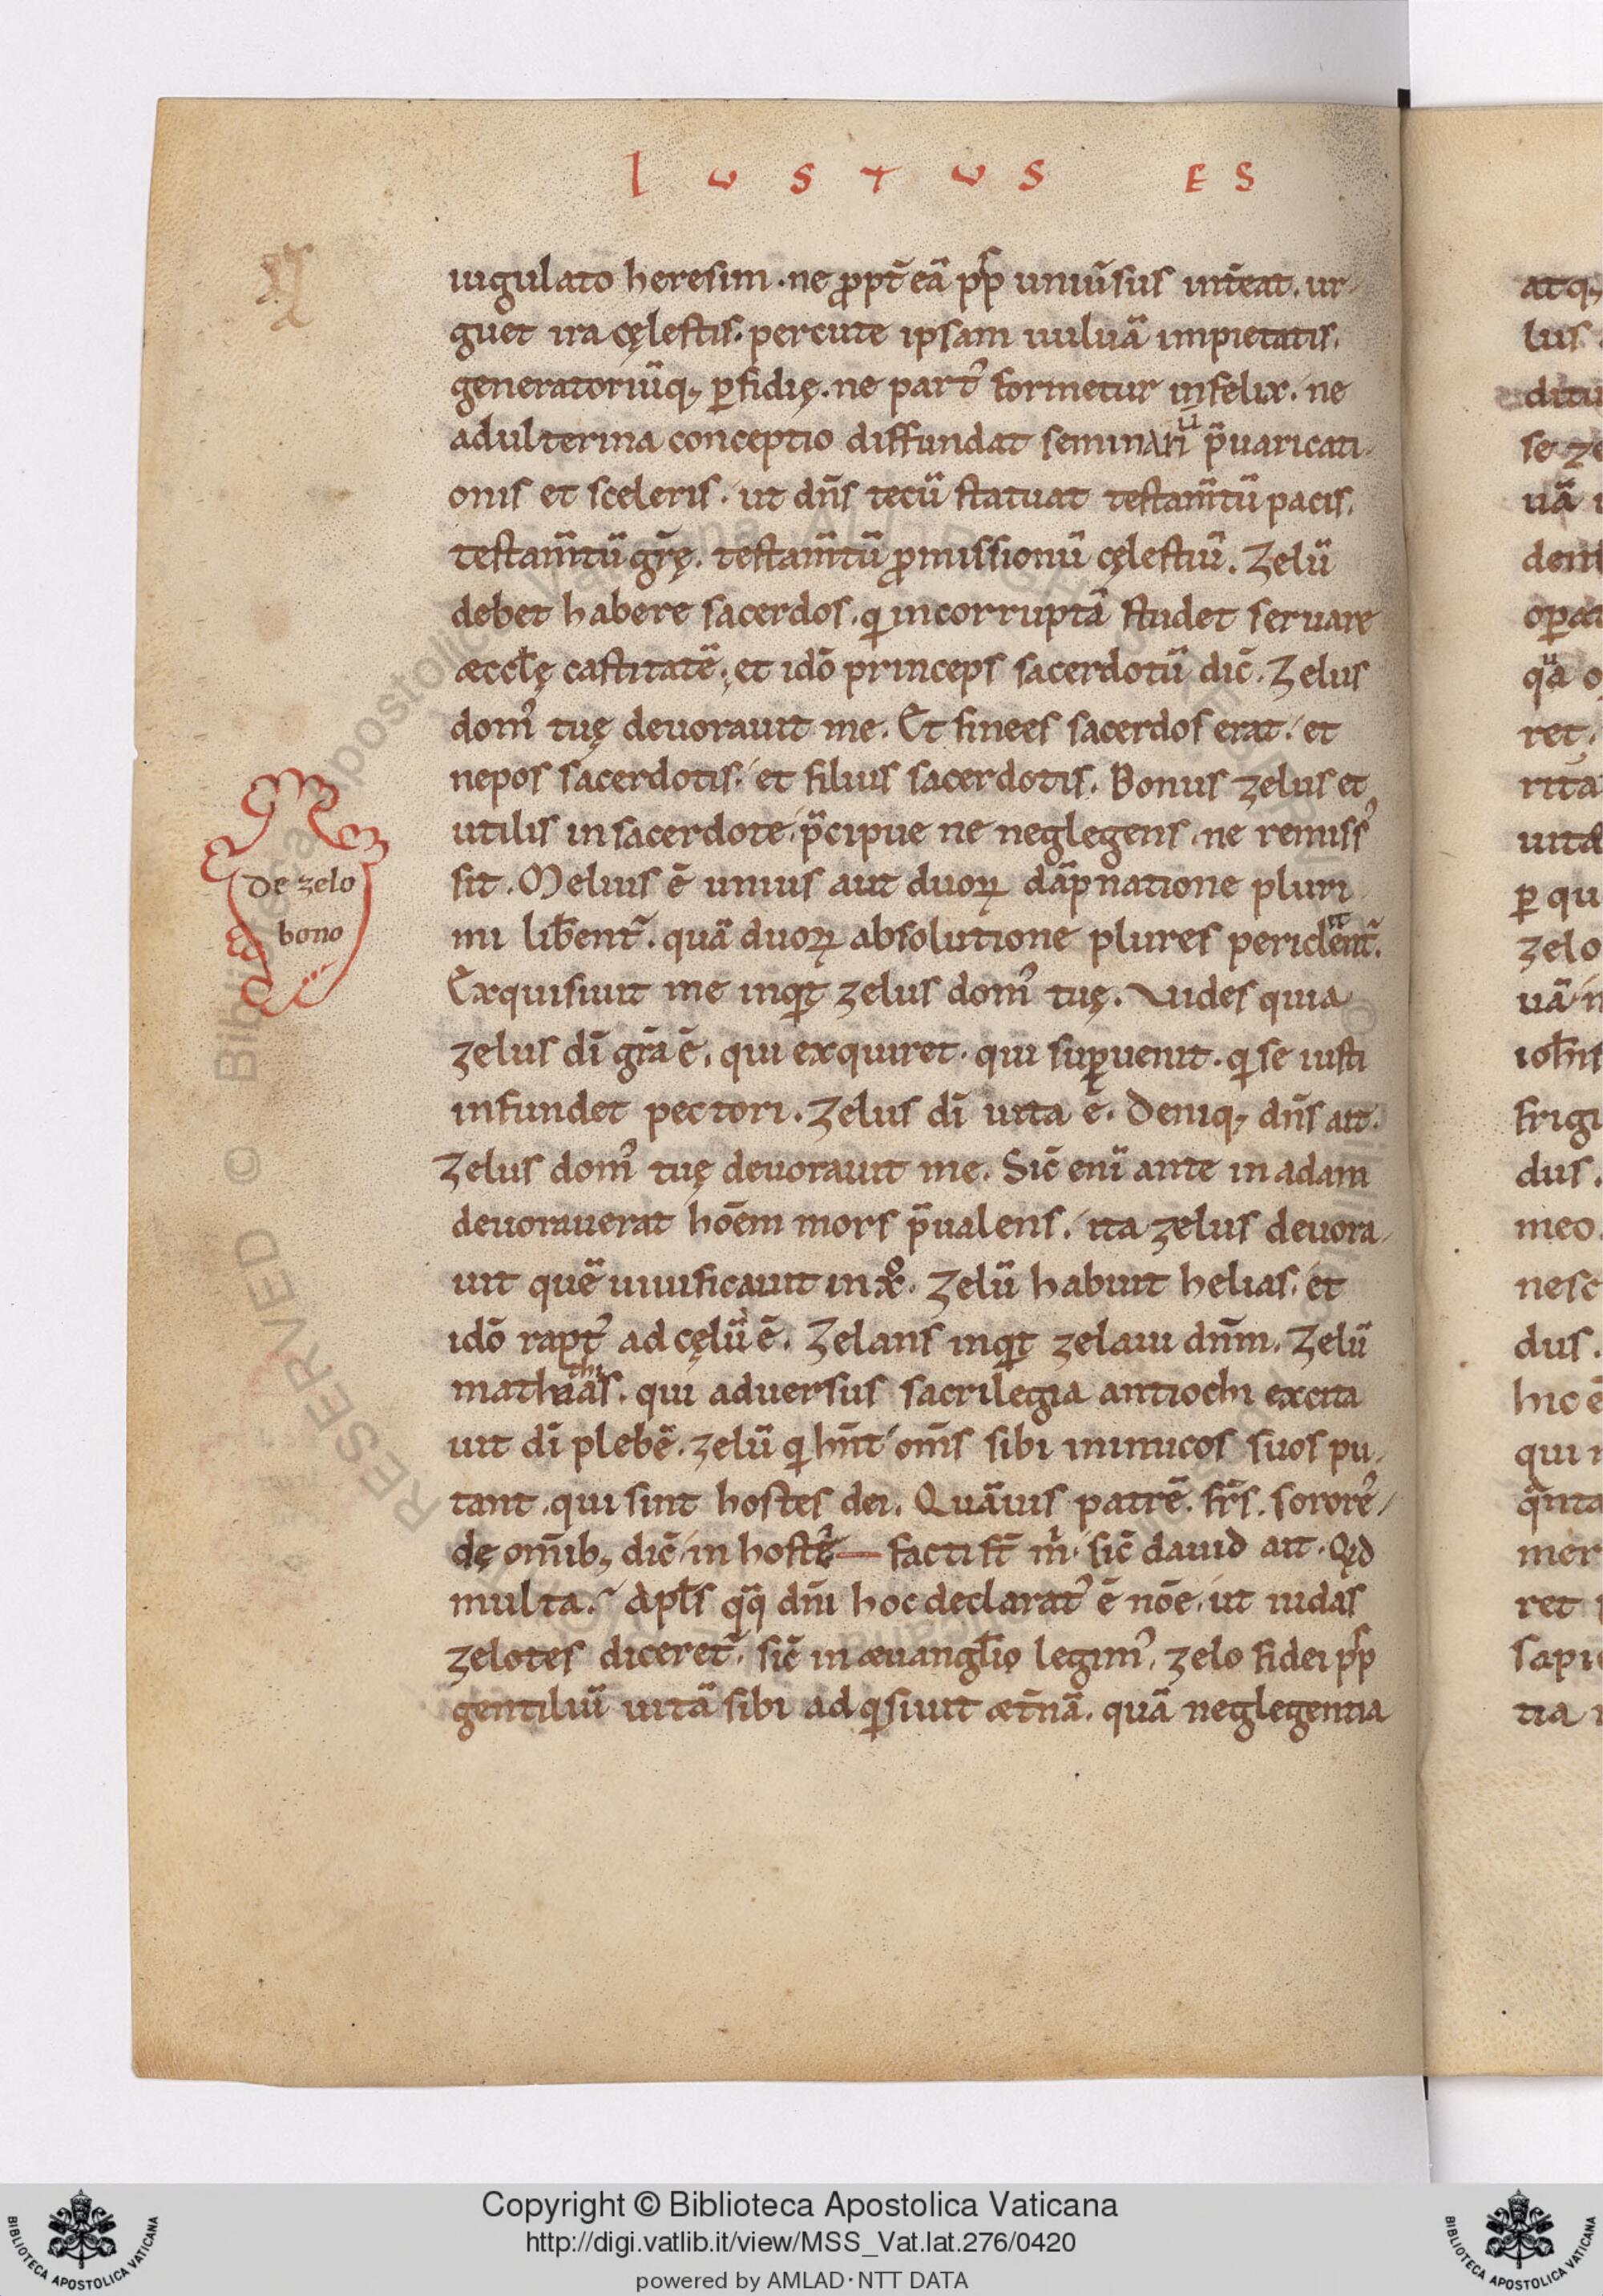 IUSTUS ES
iugulato heresim · ne ꝓpt̄ eā pp̄ uniūsus int̄eat. ur
guet ira cęlestis. percute ipsam uuluā impietatis.
generatoriūq; ꝑfidię. ne part᾿ formetur infelix. ne
adulterina conceptio diffundat seminariū p̄uaricati
onis et sceleris. ut dn̄s tecū statuat testam̄tū pacis.
testam̄tū gr̄ę. testam̄tū ꝓmissionū cęlestiū. Zelū
debet habere sacerdos. qi incorruptā studet seruare
æccl̄ę castitatē. et idō princeps sacerdotū dic̄. Zelus
dom᾿ tuę deuorauit me. Et finees sacerdos erat. et
nepos sacerdotis. et filius sacerdotis. Bonus zelus et
utilis in sacerdote. p̄cipue ne neglegens. ne remiss᾿
sit. Melius ē unius aut duoꝝ dāpnatione pluri
mi lib̄ent̄. quā duoꝝ absolutione plures periclitēnt̄.
Exquisiuit me inqit zelus dom᾿ tuę. Vides quia
zelus dī gr̄a ē. qui exquiret. qui suꝑuenit. qi se iusti
infundet pectori. Zelus dī uita ē. Deniq; dn̄s ait.
Zelus dom᾿ tuę deuorauit me. Sic̄ enī ante in adam
deuorauerat hōem mors p̄ualens. ita zelus deuora
uit quē uiuificauit in xo. Zelū habuit helias. et
idō rapt᾿ ad cęlū ē. Zelans inqit zelaui dn̄m. Zelū
mathathias. qui aduersus sacrilegia antiochi excita
uit dī plebē. zelū qi hn̄t om̄s sibi inimicos suos pu
tant. qui sint hostes dei. Quāuis patrē. fr̄s. sororē
de om̄ib; dic̄ in hostē facti st̄ m̄. sic̄ dauid ait. Qd
multa. apl̄s qq dn̄i hoc declarat᾿ ē nōe. ut iudas
zelotes diceret̄. sic̄ in æuangl̄io legim᾿. zelo fidei pp̄
gentiliū uitā sibi adqisiuit æt̄nā. quā neglegentia
De zelo
bono
atq;
lus.
ditu
se ze
uā
deni
oꝑa
ret.
rita
uita
ꝑ qu
zelo
uā
ioh̄is
frigi
dus.
meo.
nesc
dus.
hic ē
qui
mer
ret
sapi
tia
© Biblioteca Apostolica Vaticana
RESERVED
Copyright © Biblioteca Apostolica Vaticana
http://digi.vatlib.it/view/MSS_Vat.lat.276/0420
powered by AMLAD·NTT DATA
BIBLIOTECA APOSTOLICA VATICANA
BIBLIOTECA APOSTOLICA VATICANA